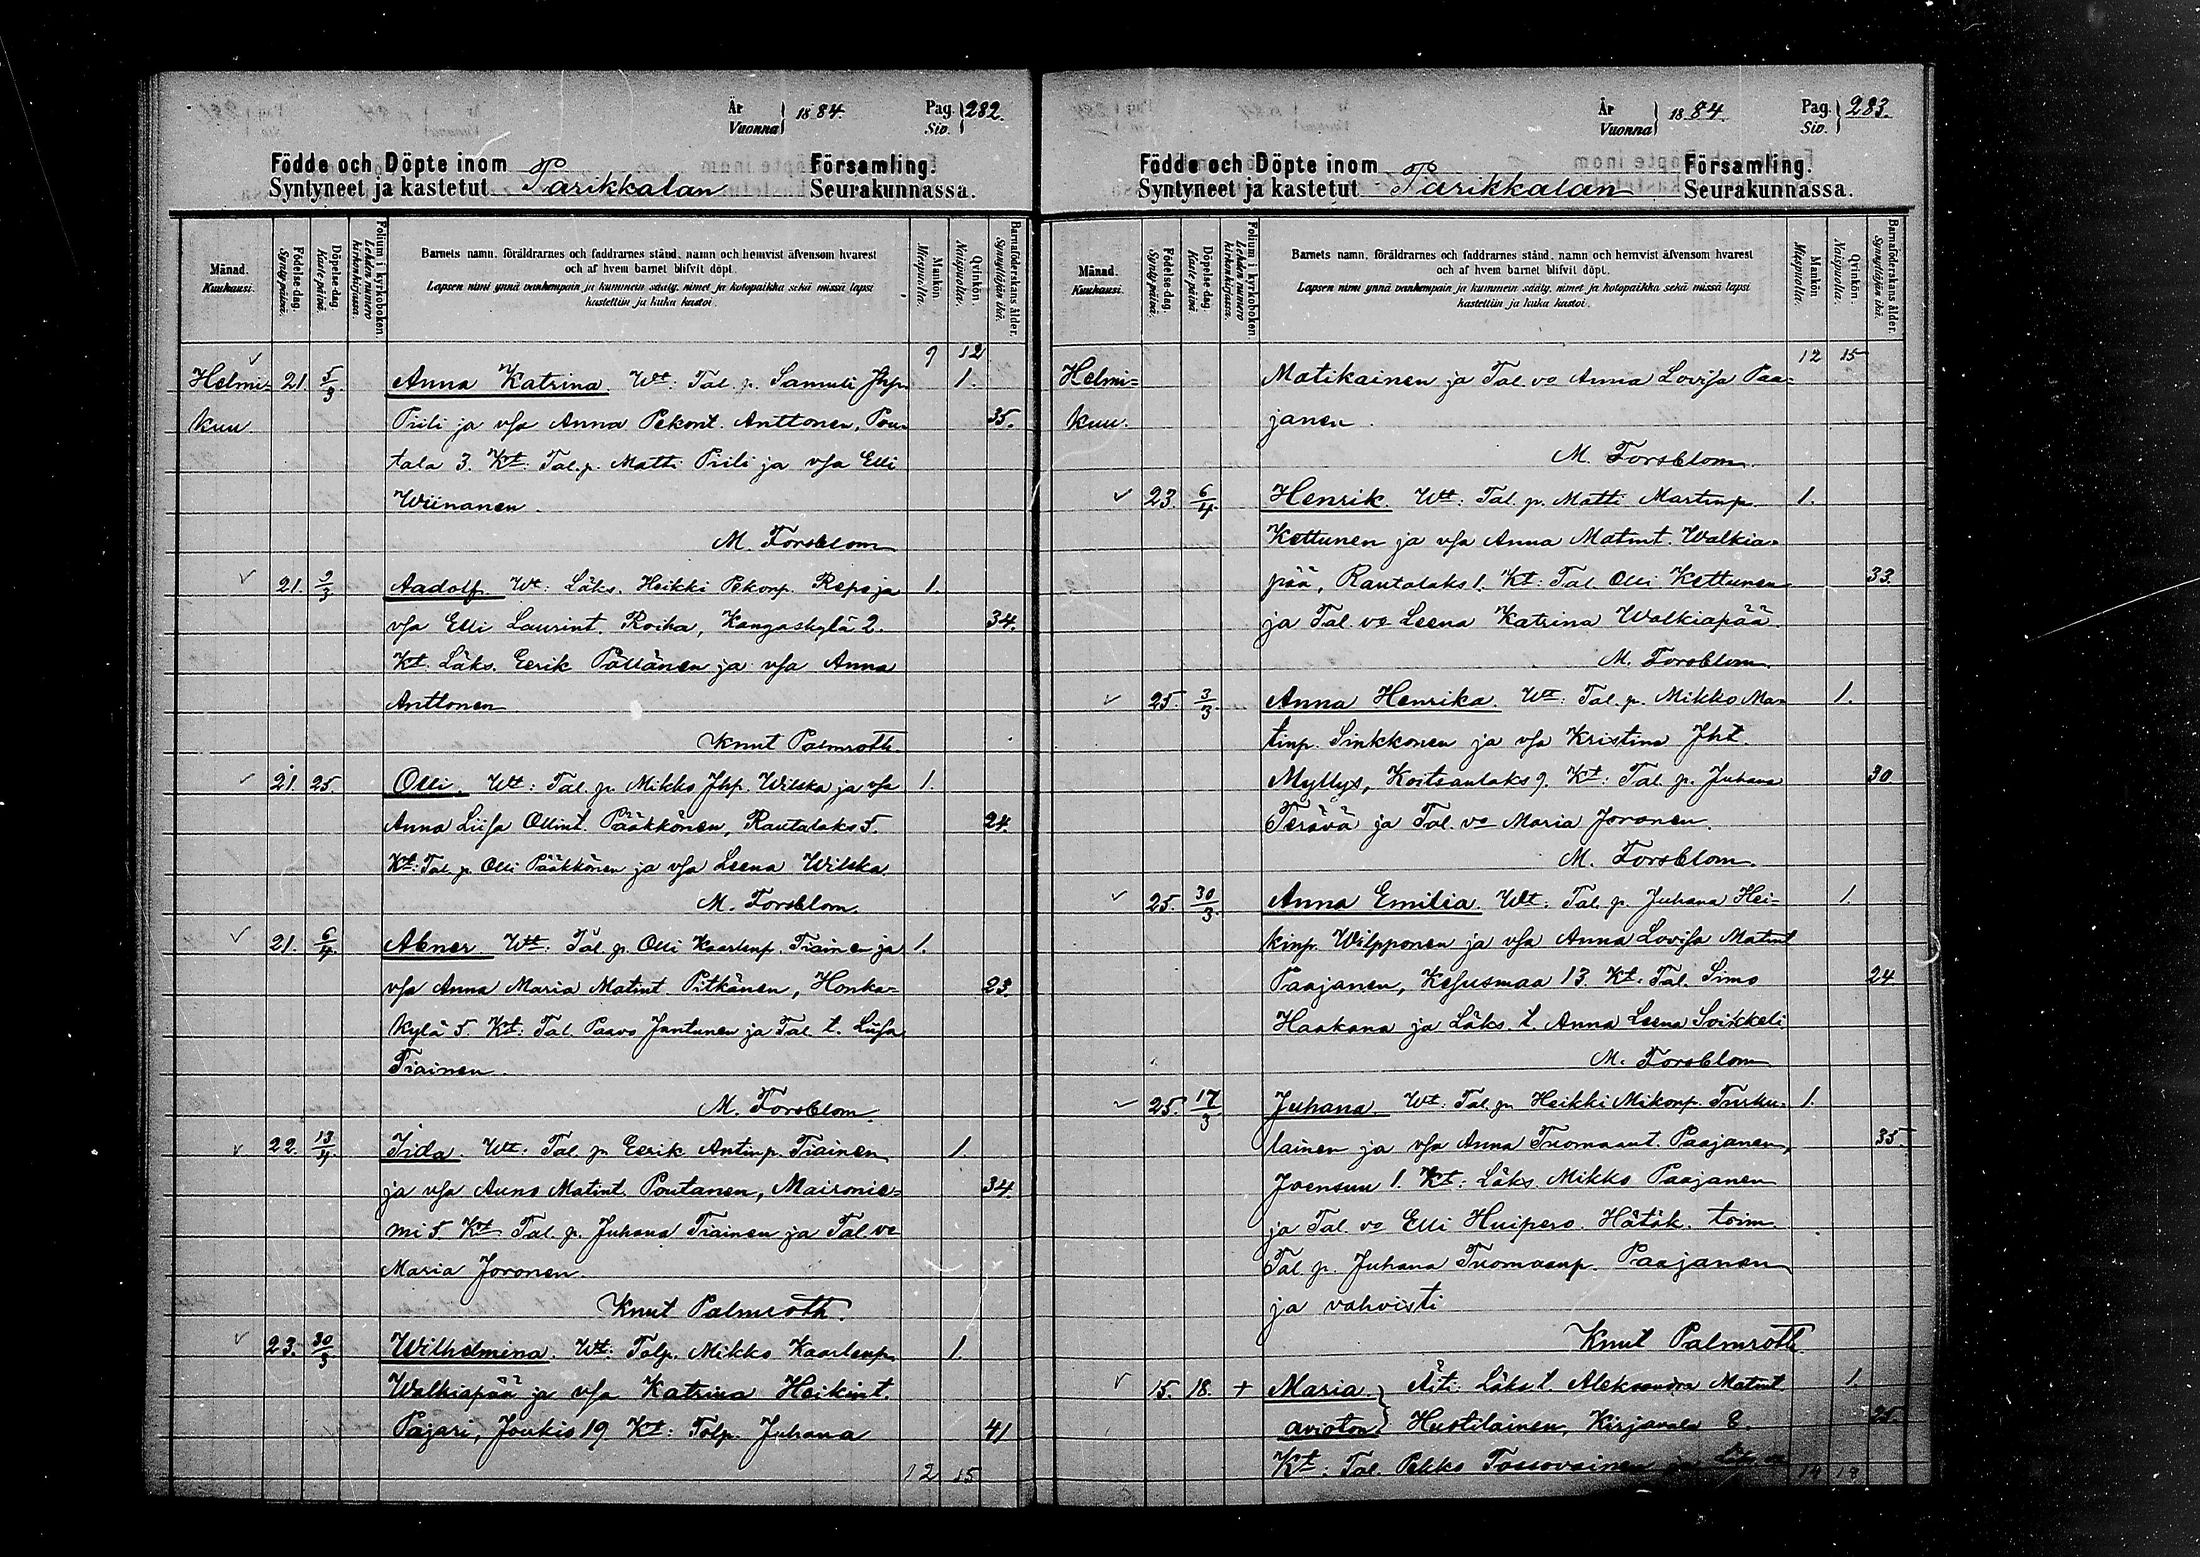 År
Vuonna } 1884. Pag. Siv. } 282.
Födde och Döpte inom Församling.
Syntyneet ja kastetut Parikkalan Seurakunnassa.
Månad. Kuukausi.
Födelse-dag. Syntypäivä.
Döpelse-dag. Kaste-päivä.
Folium i kyrkoboken. Lehden numero kirkonkirjassa.
Barnets namn, föräldrarnes och faddrarnes stånd, namn och hemvist äfvensom hvarest
och af hvem barnet blifvit döpt.
Lapsen nimi ynnä vanhempain ja kummein sääty, nimet ja kotopaikka sekä missä lapsi
kastettiin ja kuka kastoi.
Mankön Miespuolia.
Qvinkön. Naispuolia.
Barnaföderskans ålder. Synnyttäjän ikä.
9 12
Helmi= 21 5/3 Anna Katrina. Wt: Tal. p. Samuli Jhp. 1.
kuu. Piili ja vsa Anna Pekont. Anttonen, Pou= 35.
tala 3. Kt: Tal. p. Matti Piili ja vsa Elli
Wiinanen.
M. Forsblom
21. 2/3 Aadolf. Wt: Läks. Heikki Pekonp. Repo ja 1.
vsa Elli Laurint. Roiha, Kangaskylä 2. 34.
Kt. Läks. Eerik Pällänen ja vsa Anna
Anttonen
Knut Palmroth.
21. 25. Olli. Wt: Tal. p. Mikko Jhp. Wilska ja vsa 1.
Anna Liisa Ollint. Pääkkönen, Rautalaks 5. 24.
Kt: Tal. p. Olli Pääkkönen ja vsa Leena Wilska
M. Forsblom.
21. 6/4 Abner Wtt: Tal. p. Olli Kaarlenp. Tiainen ja 1.
vsa Anna Maria Matint. Pitkänen, Honka= 23.
kylä 5. Kt: Tal. Paavo Jantunen ja Tal. t. Liisa
Tiainen.
M. Forsblom
22. 13/4 Iida. Wt: Tal. p. Eerik Antinp. Tiainen 1.
ja vsa Auno Matint. Poutanen, Maironie= 34
mi 5 Kt Tal. p. Juhana Tiainen ja Tal. vo
Maria Joronen.
Knut Palmroth.
23. 30/3 Wilhelmina. Wtt: Talp. Mikko Kaarlenp. 1.
Walkiapää ja vsa Katrina Heikint.
Pajari, Joukio 19 Kt: Talp. Juhana 41
12 15
År
Vuonna } 1884. Pag. Siv. } 283.
Födde och Döpte inom Församling.
Syntyneet ja kastetut Parikkalan Seurakunnassa.
Månad. Kuukausi.
Födelse-dag. Syntypäivä.
Döpelse-dag. Kaste-päivä.
Folium i kyrkoboken. Lehden numero kirkonkirjassa.
Barnets namn, föräldrarnes och faddrarnes stånd, namn och hemvist äfvensom hvarest
och af hvem barnet blifvit döpt.
Lapsen nimi ynnä vanhempain ja kummein sääty, nimet ja kotopaikka sekä missä lapsi
kastettiin ja kuka kastoi.
Mankön Miespuolia.
Qvinkön. Naispuolia.
Barnaföderskans ålder. Synnyttäjän ikä.
12 15
Helmi= Matikainen ja Tal. vo Anna Lovisa Paa=
kuu. janen.
M. Forsblom.
23. 6/4 Henrik. Wtt: Tal. p. Matti Martinp. 1.
Kettunen ja vsa Anna Matint. Walkia=
pää, Rautalaks 1. Kt: Tal. Olli Kettunen 33.
ja Tal. vo Leena Katrina Walkiapää.
M. Forsblom.
25. 3/3 Anna Henrika. Wt: Tal. p. Mikko Ma= 1.
tinp. Sinkkonen ja vsa Kristina Jht.
Myllys, Koitsanlaks 9. Kt: Tal. p. Juhana 30
Terävä ja Tal. vo Maria Joronen.
M. Forsblom.
25. 30/3 Anna Emilia. Wt: Tal. p. Juhana Hei= 1.
kinp. Wilpponen ja vsa Anna Lovisa Matint
Paajanen, Kesusmaa 13. Kt: Tal. Simo 24
Haakana ja Läks. t. Anna Leena Soikkeli
M. Forsblom
25. 17/3 Juhana. Wt: Tal. p. Heikki Mikonp. Turku= 1.
lainen ja vsa Anna Tuomaant. Paajanen, 35.
Joensuu 1. Kt: Läks. Mikko Paajanen
ja Tal. vo Elli Huipero. Hätäk. toim.
Tal. p. Juhana Tuomaanp. Paajanen
ja vahvisti
Knut Palmroth
15. 18. + Maria } Äiti: Läks t. Aleksandra Matint 1.
avioton } Hustilainen, Kirjavala 8. 25.
Kt: Tal. Pekko Tossavainen ja
14 18